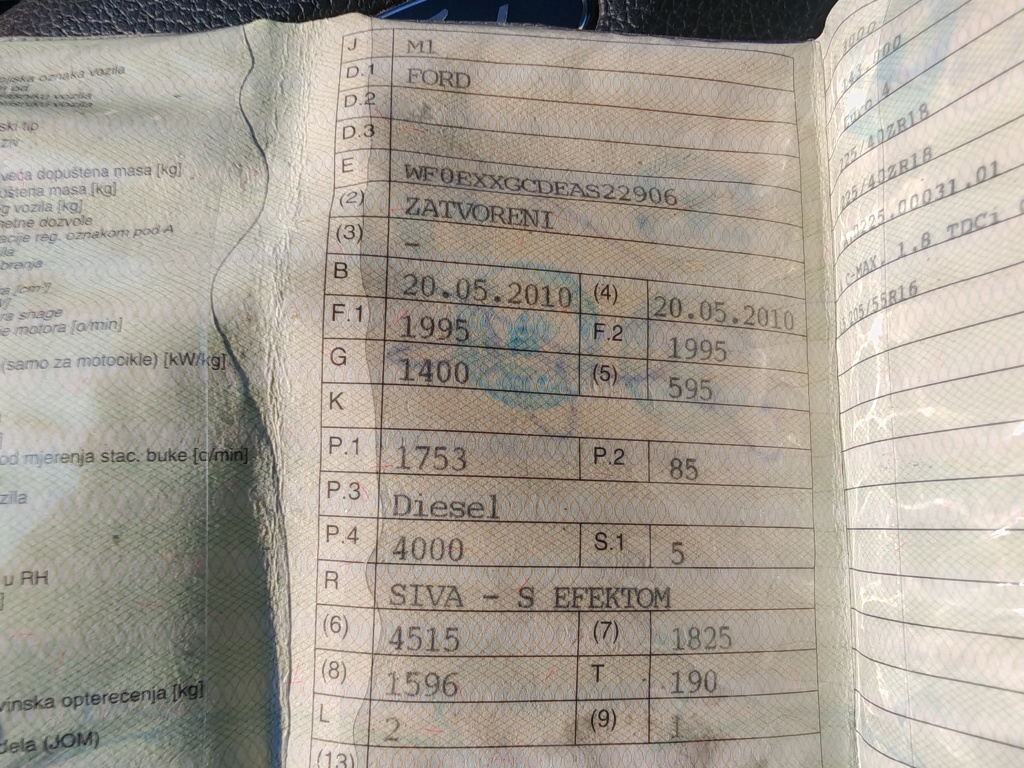 oznaka vozila
vozila
ski tip
ziv
veća dopuštena masa [kg]
masa [kg]
g vozila [kg]
dozvole
reg. oznakom pod A
ra snage
e motora [o/min]
(samo za motocikle) [kW/kg]
od mjerenja stac. buke [o/min]
zila
u RH
vinska opterećenja [kg]
dela (JOM)
J M1
D.1 FORD
D.2
D.3
E WF0EXXGCDEAS22906
(2) ZATVORENI
(3) –
B 20.05.2010 (4) 20.05.2010
F.1 1995 F.2 1995
G 1400 (5) 595
K
P.1 1753 P.2 85
P.3 Diesel
P.4 4000 S.1 5
R SIVA - S EFEKTOM
(6) 4515 (7) 1825
(8) 1596 T 190
L 2 (9) 1
(13)
225/40ZR18
225/40ZR18
225.00031.01
C-MAX, 1.8 TDCi
205/55R16